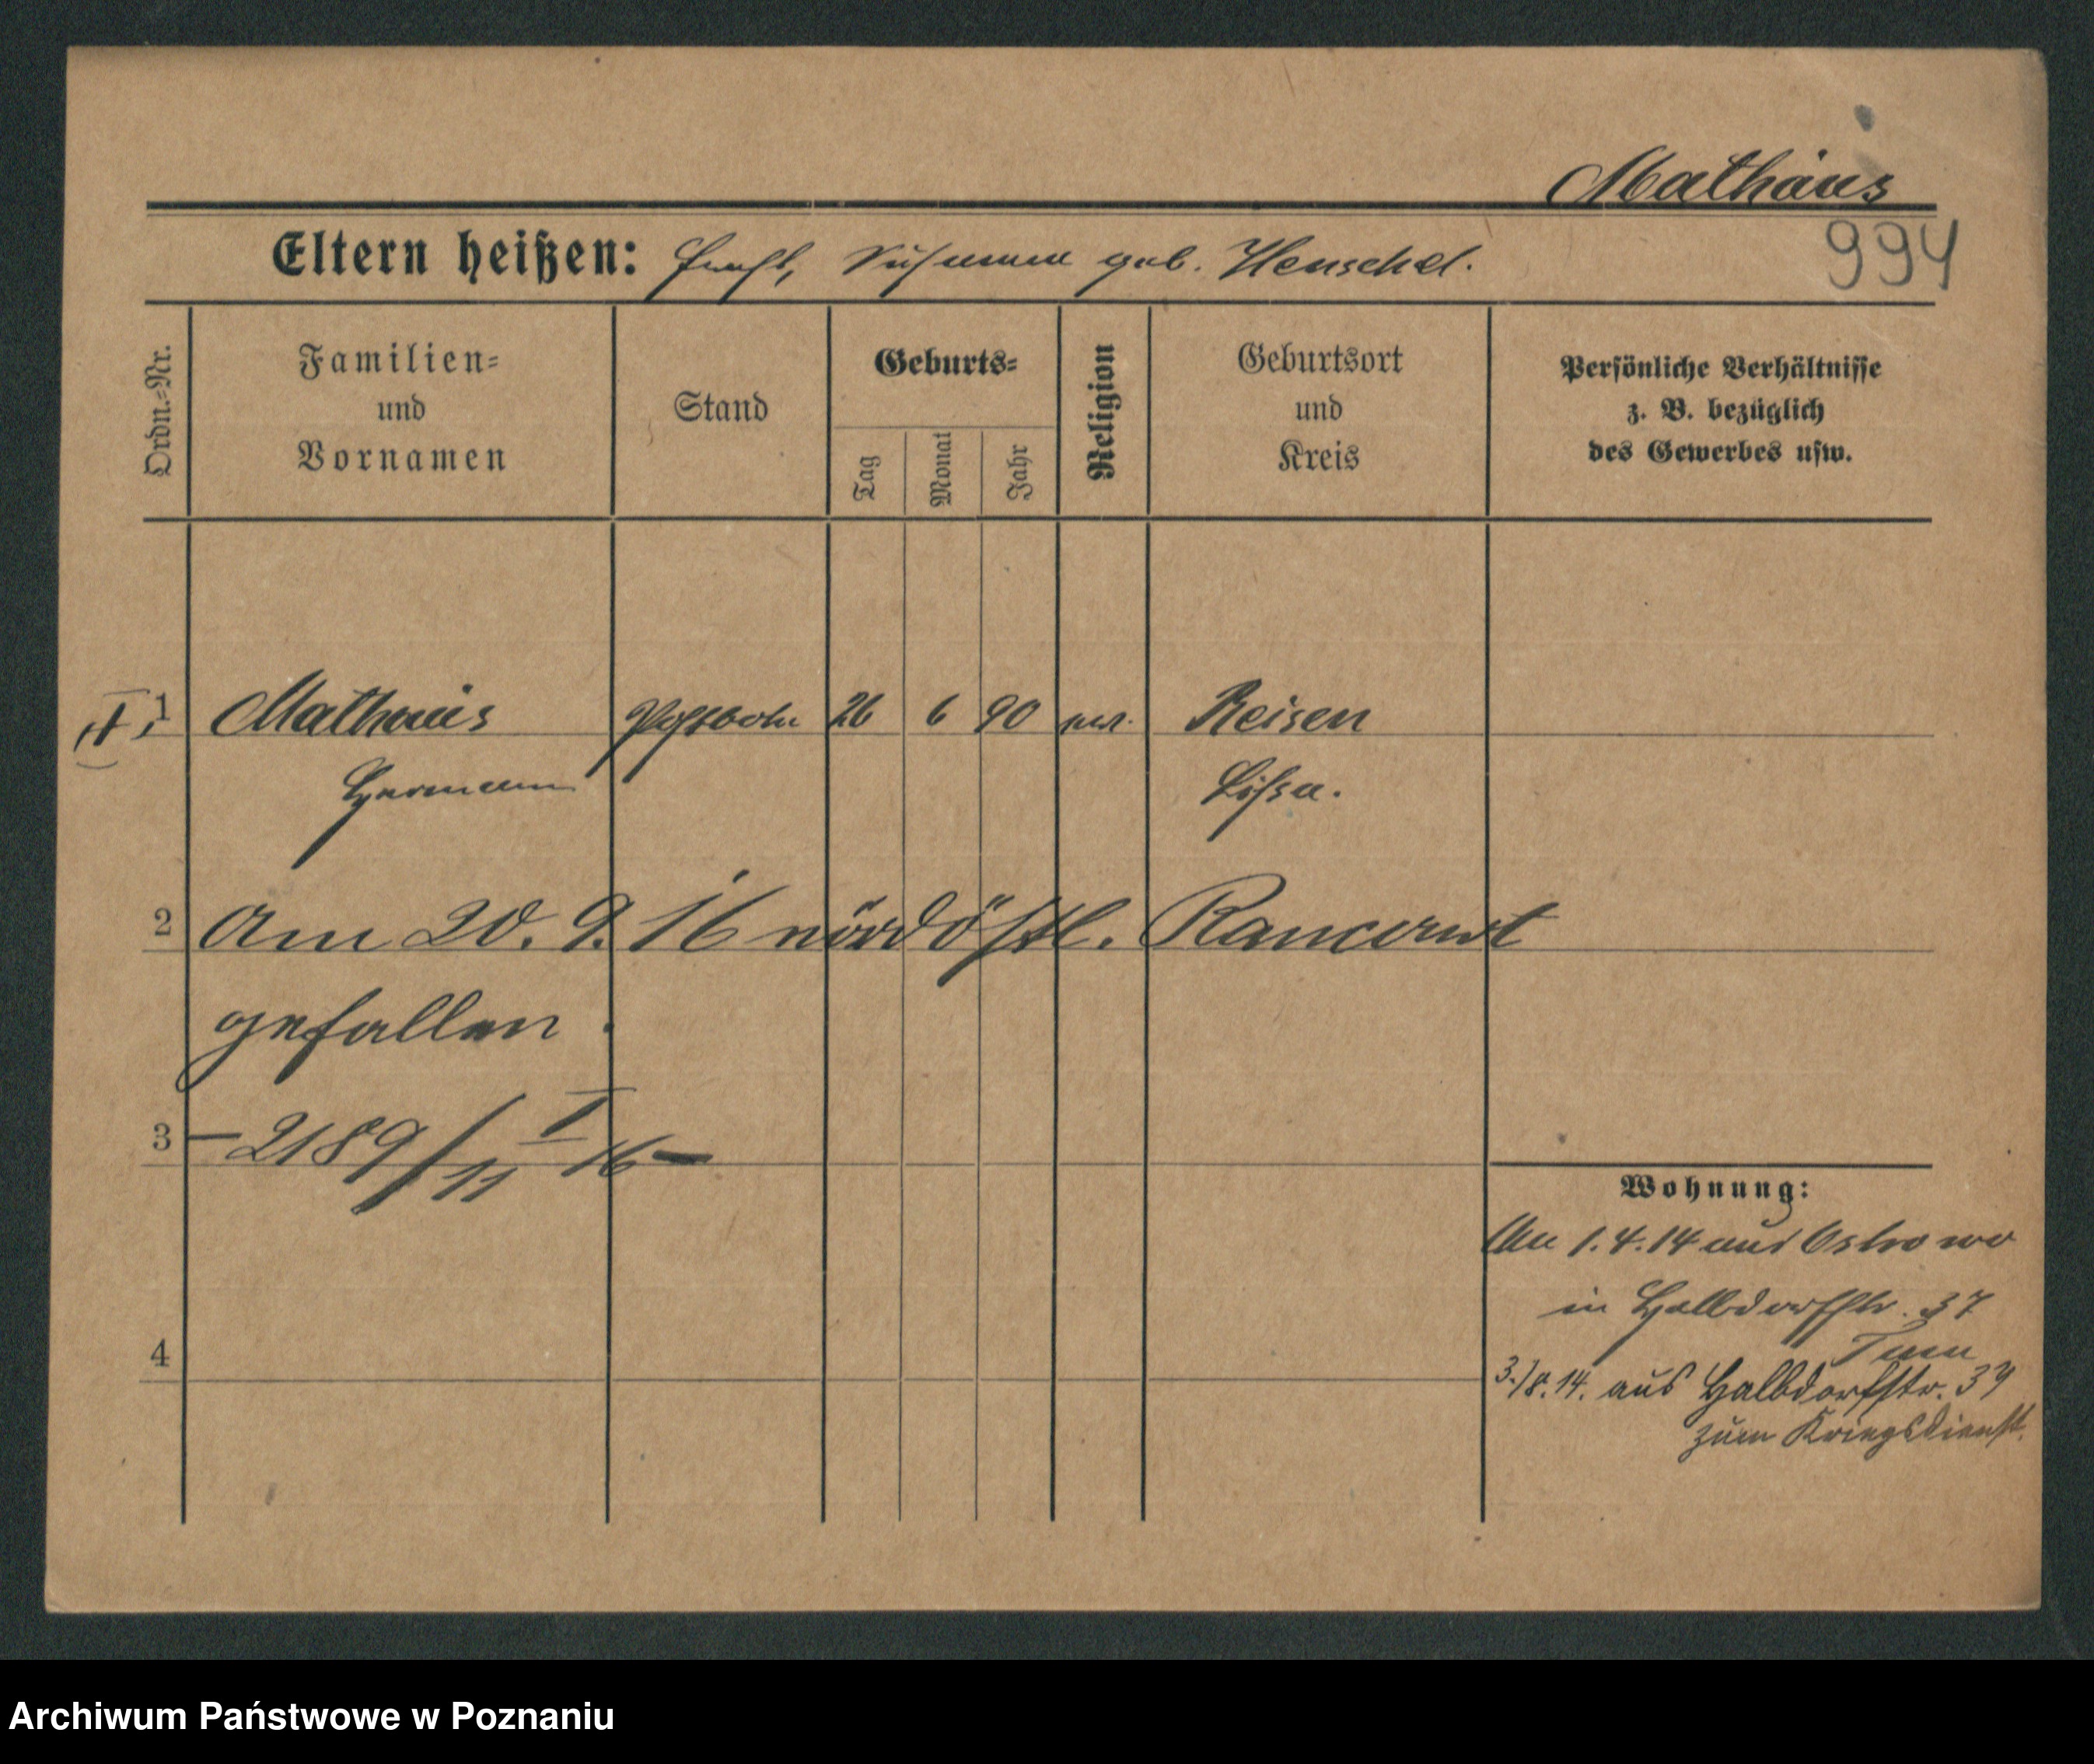 Mathäus
Eltern heißen: Ernst, Susanna geb. Henschel.
994
Ordn.=Nr.
Familien=
und
Vornamen
Stand
Geburts=
Tag
Monat
Jahr
Religion
Geburtsort
und
Kreis
Persönliche Verhältnisse
z. B. bezüglich
des Gewerbes usw.
1 Mathäus Postbote 26 6 90 Reisen
Hermann Lissa.
2 Am 20. 9. 16 nördöstl. Rancourt
gefallen.
3 – 2189/11 I 16 –
Wohnung:
An 1.4.14 aus Ostrowo
in Halbdorfstr. 37
4
3./8.14. aus Halbdorfstr. 39
zum Kriegsdienst.
Archiwum Państwowe w Poznaniu